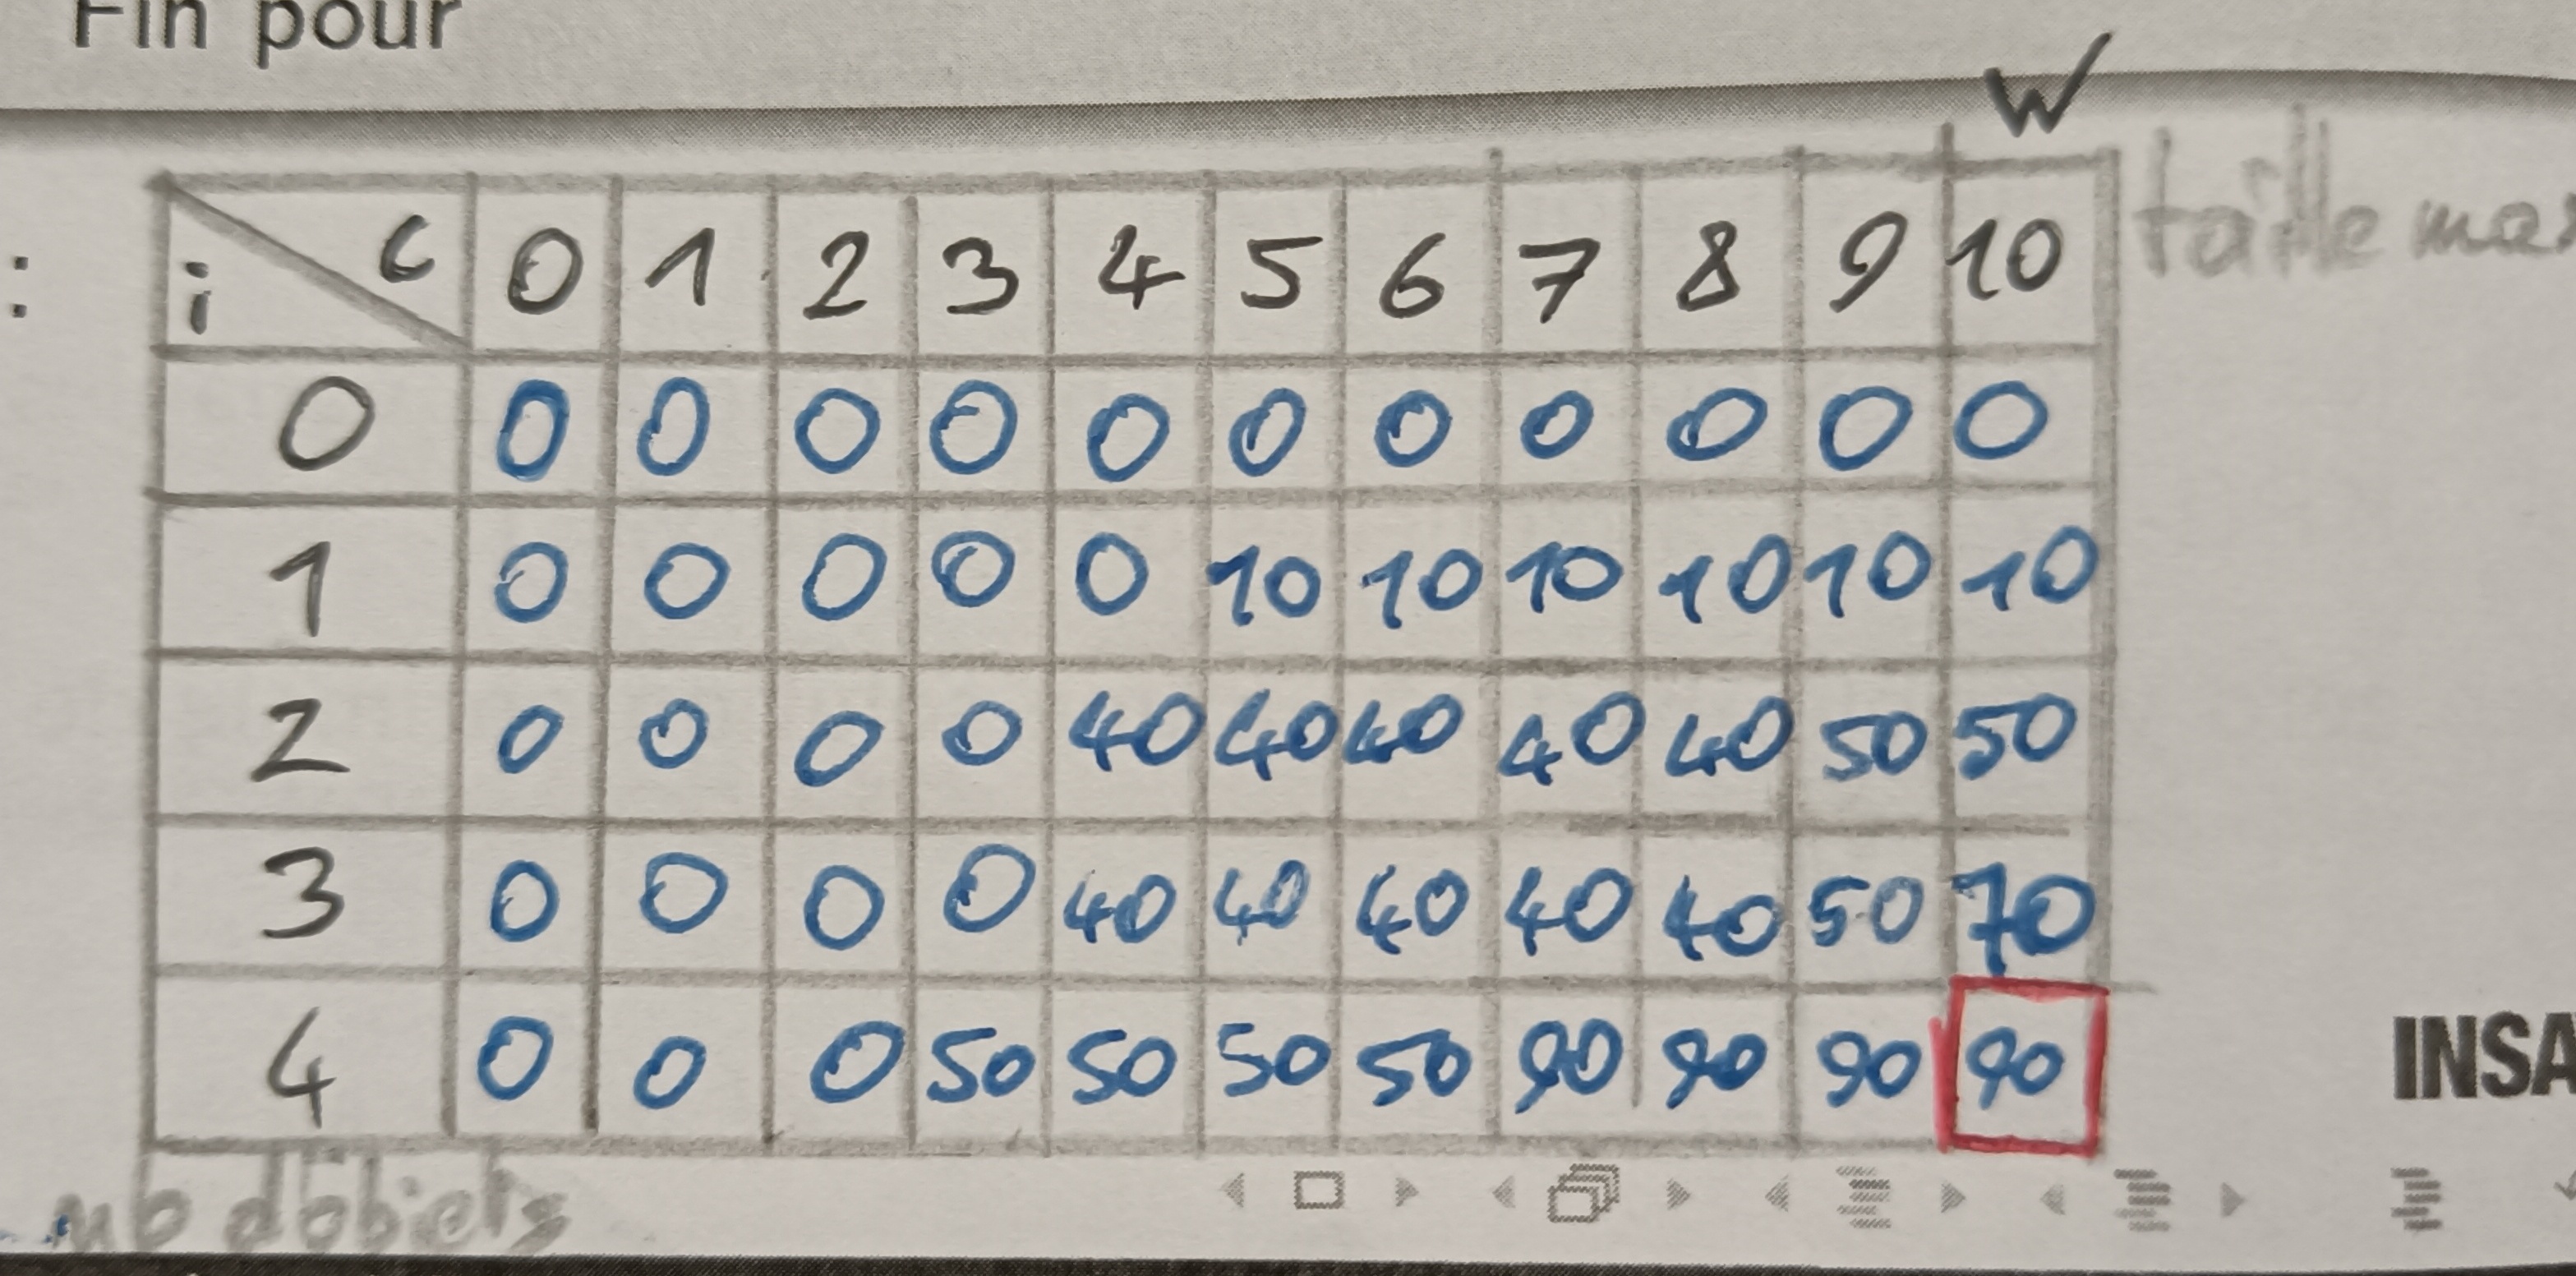 Fin pour
W
: i c 0 1 2 3 4 5 6 7 8 9 10 taille max
0 0 0 0 0 0 0 0 0 0 0 0
1 0 0 0 0 0 10 10 10 10 10 10
2 0 0 0 0 40 40 40 40 40 50 50
3 0 0 0 0 40 40 40 40 40 50 70
4 0 0 0 50 50 50 50 90 90 90 90
INSA
nb d'objets